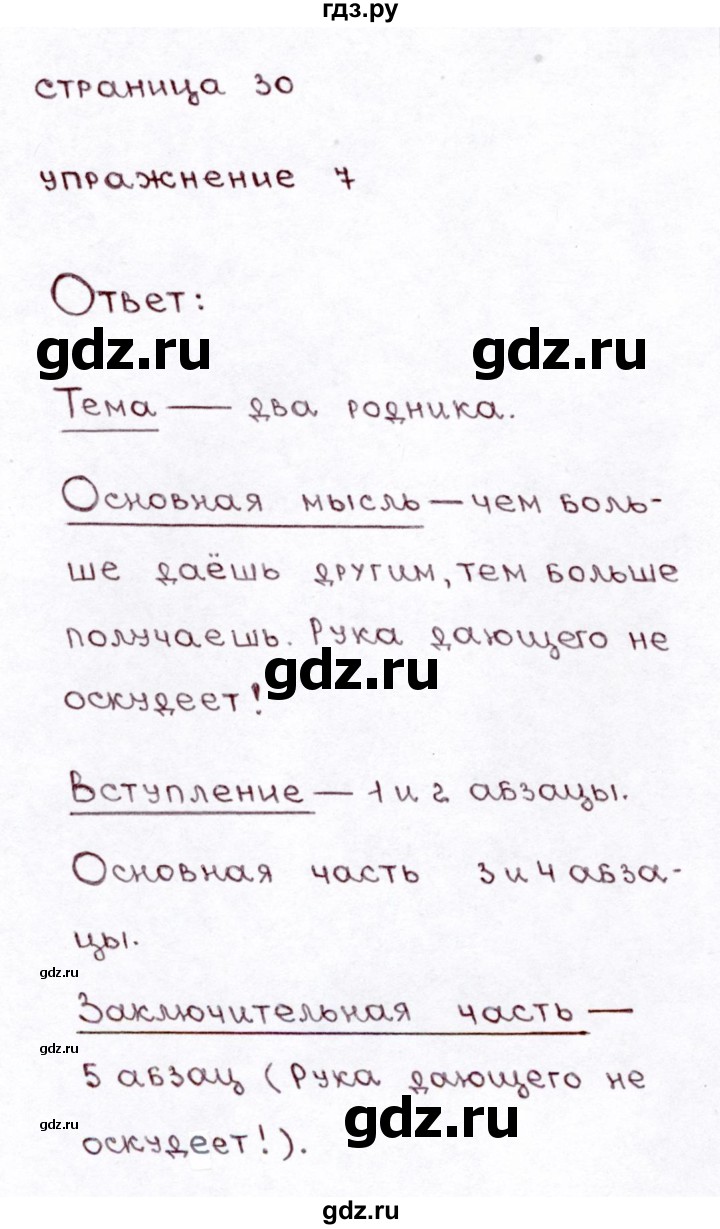 гдз.ру
страница 30
упражнение 7
Ответ:
gdz.ru gdz.ru
Тема — два родника.
Основная мысль — чем боль-
ше даёшь другим, тем больше
получаешь. Рука дающего не
gdz.ru
оскудеет!
Вступление — 1 и 2 абзацы.
Основная часть 3 и 4 абза-
цы.
gdz.ru
Заключительная часть —
gdz.ru
5 абзац (Рука дающего не
gdz.ru gdz.ru
оскудеет!).
gdz.ru